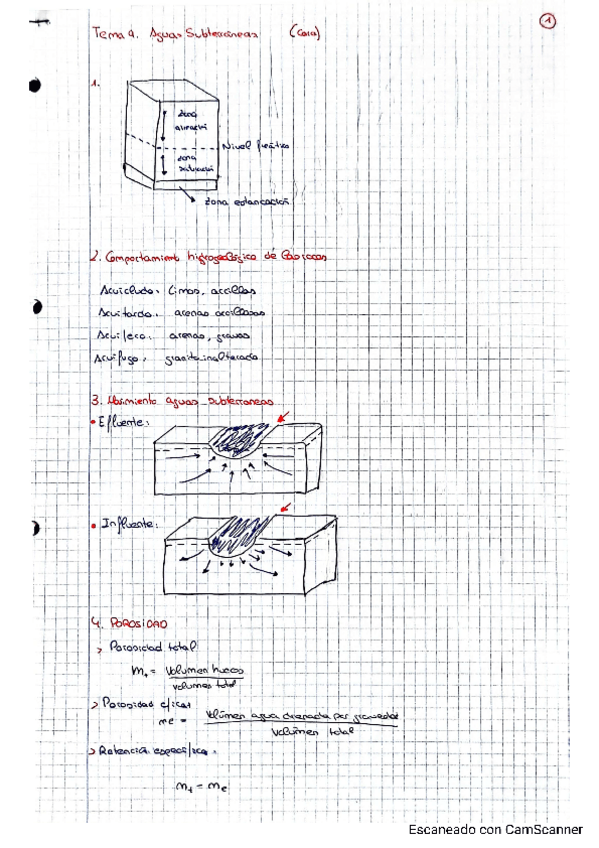 1
Tema 4. Aguas Subterráneas (Cara)
1.
zona aireación
Nivel freático
zona saturación
zona estancación
2. Comportamiento hidrogeológico de las rocas
Acuicludo: limos, arcillas
Acuitardo: arenas arcillosas
Acuífero: arenas, gravas
Acuífugo: granito inalterado
3. Movimiento aguas subterráneas
• Efluente:
• Influente:
4. POROSIDAD
> Porosidad total
mt = Volumen huecos
volumen total
> Porosidad eficaz
me = Volúmen agua drenada por gravedad
Volúmen total
> Retencia específica:
mt - me
Escaneado con CamScanner